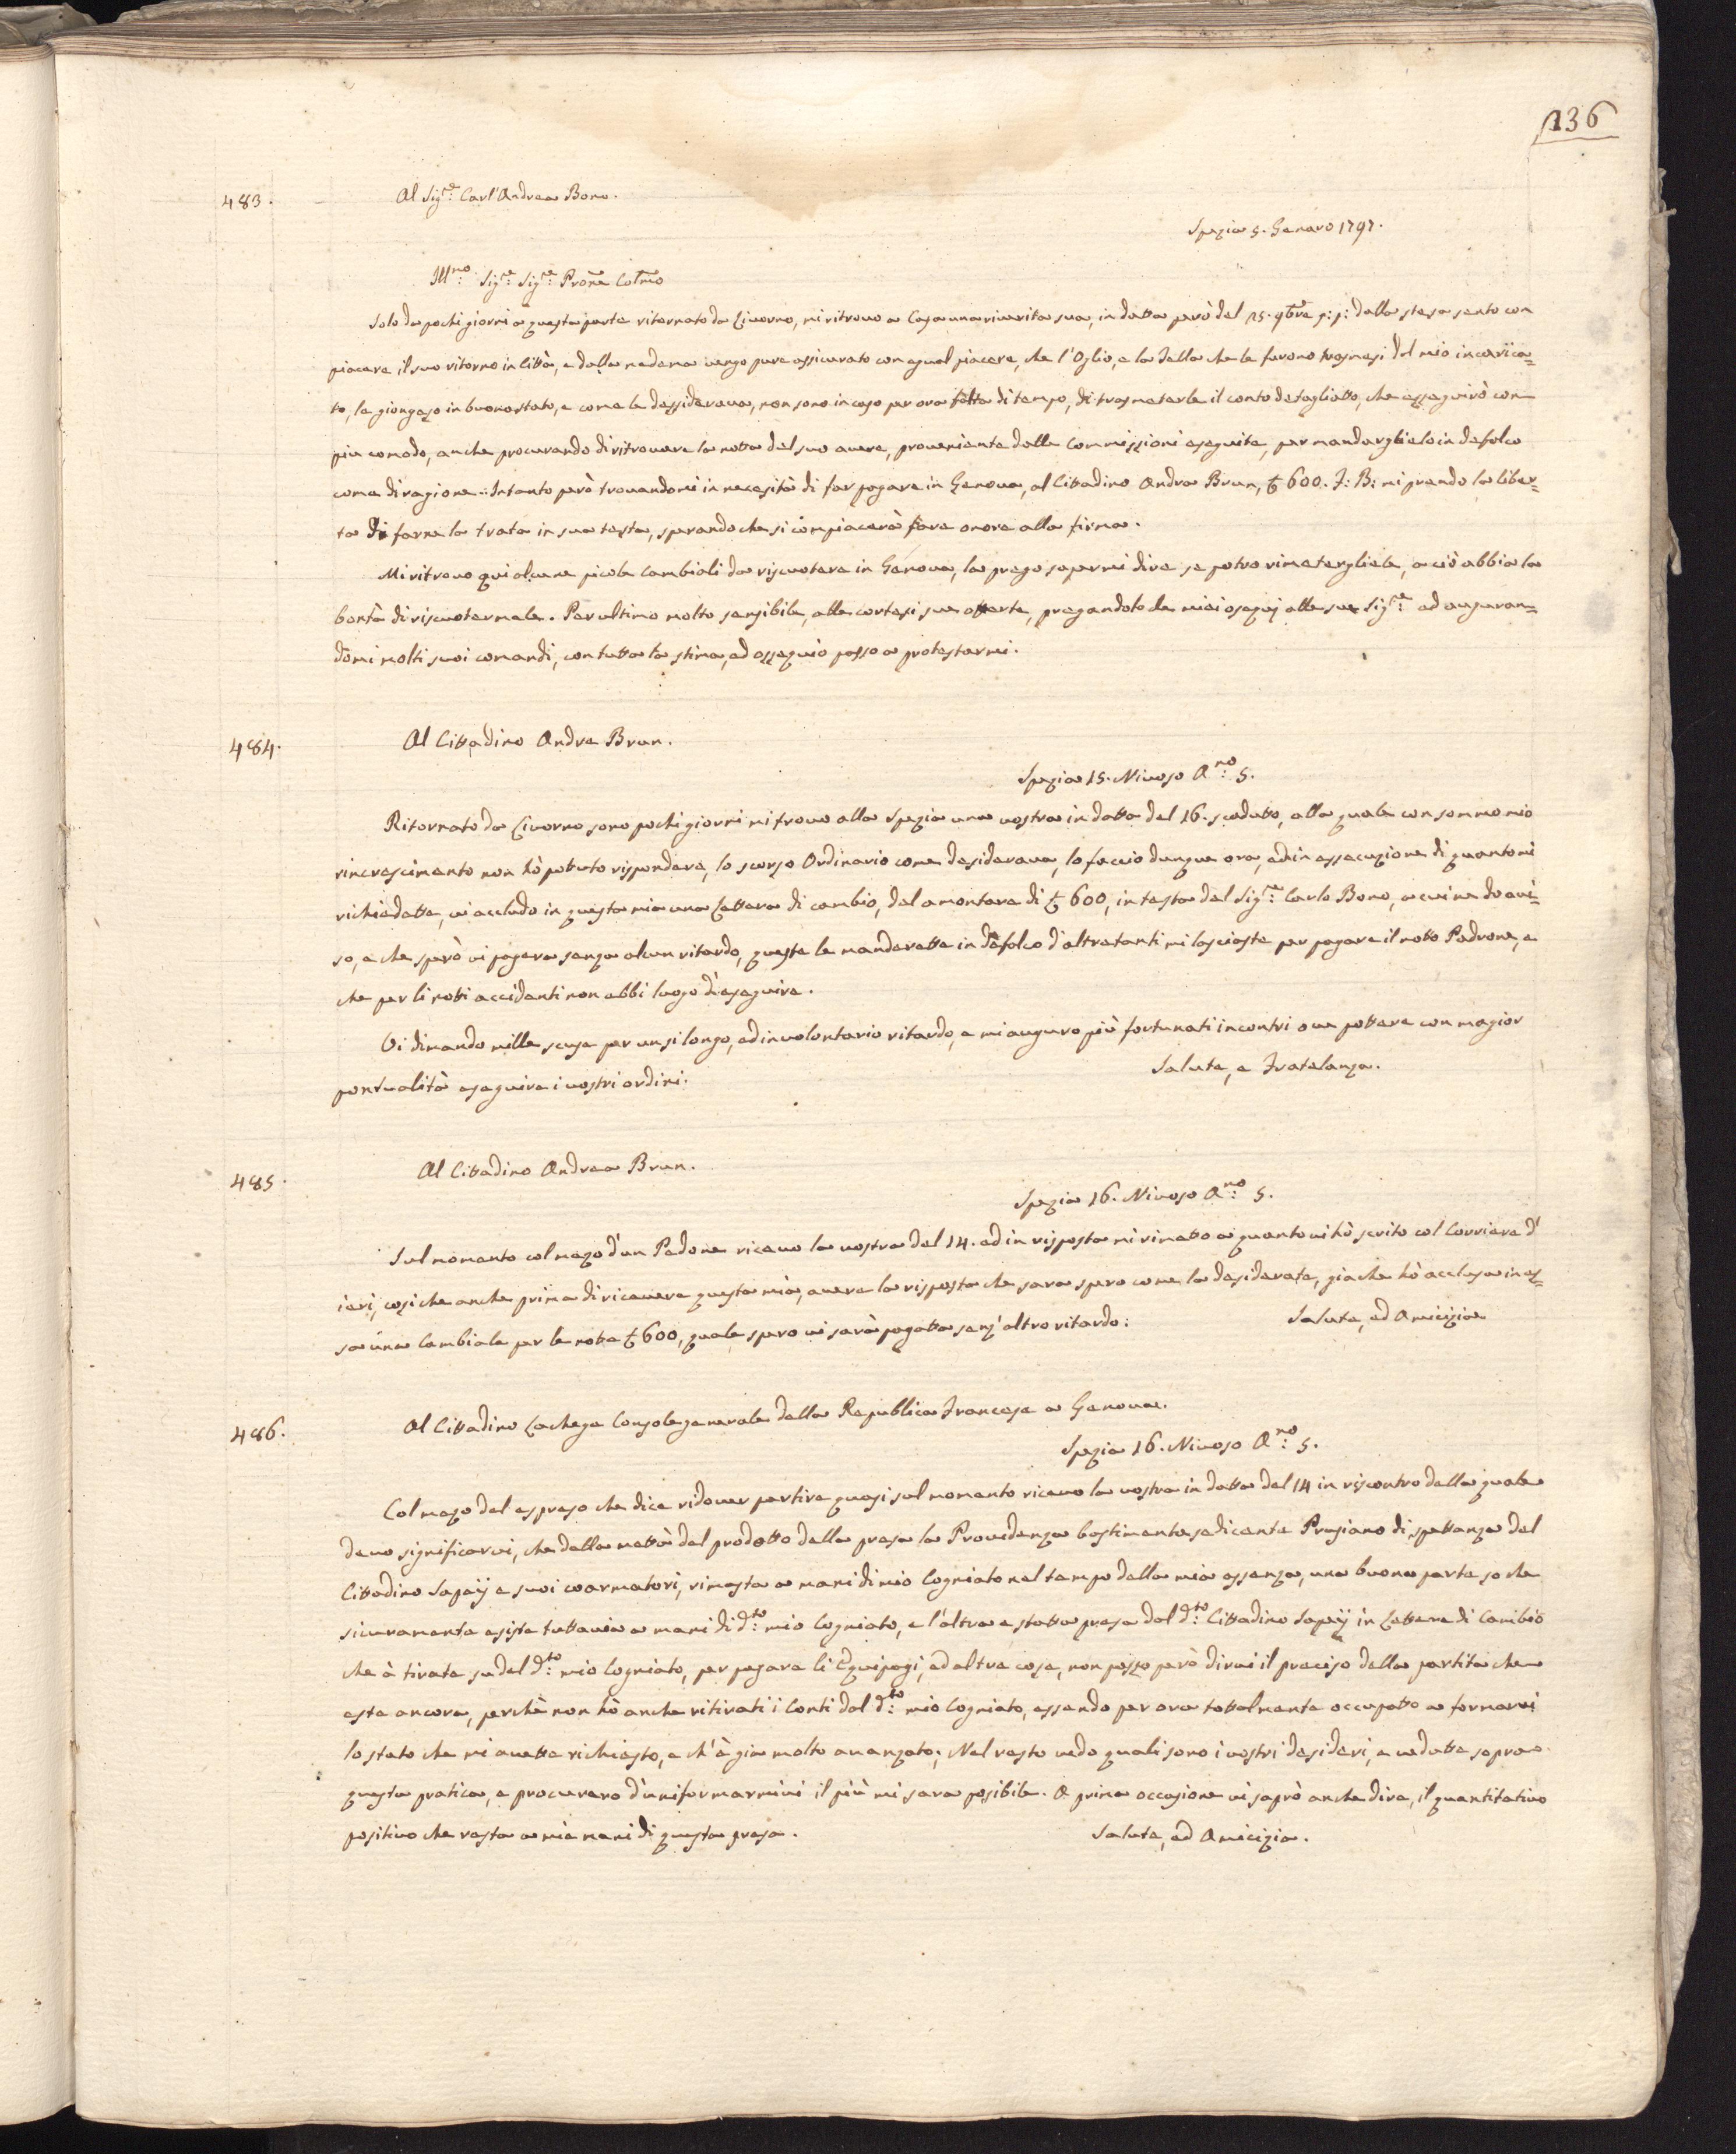 136
483. Al Sig.re Carl'Andrea Bono.
Spezia 5. Genaro 1797.
Ill.mo Sig.re Sig.re Prōne Colmo
Solo da pochi giorni a questa parte ritornato da Livorno, mi ritrovo a Casa una riverita sua, in datta però del 25. 9bre p: p: dalla stesa sento con
piacere il suo ritorno in Città, e dalla medema vengo pure assicurato con egual piacere, che l'Oglio, e la Sella che le furono trasmesi dal mio incarica=
to, le giongeso in buono stato, e come le dessiderava, non sono in caso per ora fatta di tempo, di trasmeterle il conto detagliatto, che esseguirò con
più comodo, anche procurando di ritrovare la notta del suo avere, proveniente dalle Commissioni eseguite, per mandarglielo in defolco
come di ragione.. Intanto però trovandomi in necesità di far pagare in Genova, al Cittadino Andra Brun, £ 600. F: B: mi prendo la liber=
ta di farne la trata in sua testa, sperando che si compiacerà fare onore alla firma.
Mi ritrovo qui alcune picole Cambiali da riscuotere in Genova, la prego sapermi dire se potro rimetergliele, a ciò abbia la
bontà di riscuotermele. Per ultimo molto sensibile, alle cortesi sue offerte, pregandolo de miei osequj alle sue Sig.re ed auguran=
domi molti suoi comandi, con tutta la stima, ed ossequiò passo a protestarmi.
484. Al Cittadino Andre Brun.
Spezia 15. Nivoso A.no 5.
Ritornato da Livorno sono pochi giorni mi trovo alla Spezia una vostra in datta del 16. scadutto, alla quale con sommo mio
rincrescimento non hò pottuto rispondere, lo scorso Ordinario come desiderava, lo faccio dunque ora, ed in essecuzione di quanto mi
richiedette, vi accludo in questa mia una Lettera di cambio, del amontare di £ 600, in testa del Sig.re Carlo Bono, a cui ne do avi=
so, e che sperò vi pagera senza alcun ritardo, queste le manderette in defolco d'altretanti mi lasciaste per pagare il notto Padrone, e
che per li notti accidenti non abbi luogo d'eseguire.
Vi dimando mille scuse per un si longo, ed involontario ritardo, e mi auguro più fortunati incontri ove pottere con magior
pontualità eseguire i vostri ordini. Salute, e Fratelanza.
485. Al Cittadino Andrea Brun.
Spezia 16. Nivoso A.no 5.
Sul momento col mezo d'un Pedone ricevo la vostra del 14. ed in risposta mi rimetto a quanto vi hò scrito col Corriere d'
ieri, cosiche anche prima di ricevere questa mia, avere la risposta che sara spero come la desiderate, giache hò acclusa in es=
sa una Cambiale per le notte £ 600, quale spero vi sarà pagatta senz'altro ritardo: Salute, ed Amicizia
486. Al Cittadino Lacheze Console generale della Republica Francese a Genova.
Spezia 16. Nivoso A.no 5.
Col mezo del espreso che dice ridover partire quasi sul momento ricevo la vostra in datta del 14 in riscontro della quale
devo significarvi, che della mettà del prodotto della presa la Providenza bastimento sedicente Prusiano di spettanza del
Cittadino Sapeij e suoi coarmatori, rimasta a mani di mio Cogniato nel tempo della mia assenza, una buona parte so che
sicuramente esiste tuttavia a mani di d.to mio Cogniato, e l'altra e statta presa dal d.to Cittadino Sapeij in Lettere di Cambio
che à tirate su del d.to mio Cogniato, per pagare li Equipagi, ed altre cose, non posso però dirvi il preciso della partita che
este ancora, perchè non hò anche ritirati i Conti dal d.to mio Cogniato, essendo per ora tottalmente occupatto a formarvi
lo stato che mi avette richiesto, e ch'è gia molto avanzato; Nel resto vedo quali sono i vostri desideri, e vedutte sopra
questa pratica, e procurero d'uniformarmivi il più mi sara posibile. A prima occasione vi saprò anche dire, il quantitativo
positivo che resta a mie mani di questa presa. Salute, ed Amicizia.